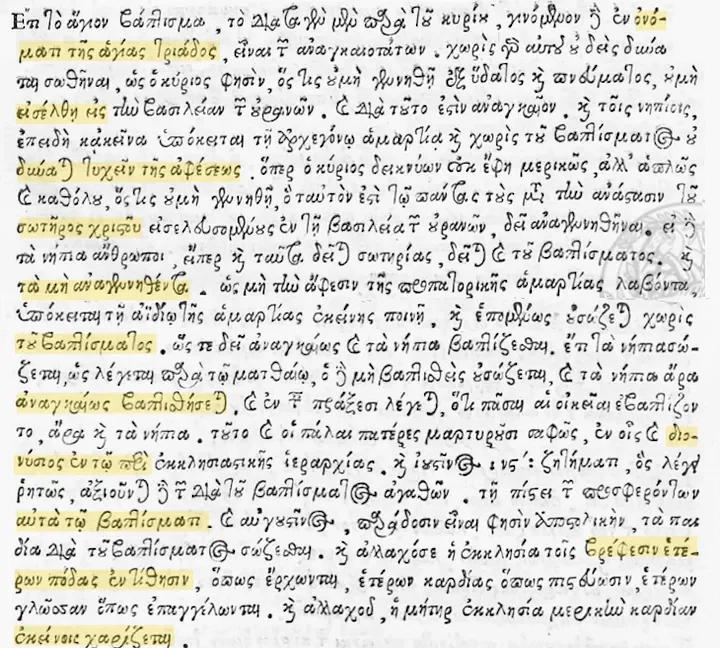 Ἔτι τὸ ἅγιον βάπτισμα, τὸ διαταχθὲν μὲν παρὰ τοῦ κυρίου, γινόμενον δὲ ἐν ὀνό-
ματι τῆς ἁγίας τριάδος, εἶναι τῶν ἀναγκαιοτάτων. χωρὶς γὰρ αὐτοῦ οὐδεὶς δύνα
ται σωθῆναι, ὡς ὁ κύριος φησὶν, ὅστις οὐ μὴ γεννηθῇ ἐξ ὕδατος καὶ πνεύματος, οὐ μὴ
εἰσέλθῃ εἰς τὴν βασιλείαν τῶν οὐρανῶν. καὶ διὰ τοῦτο ἐστὶν ἀναγκαῖον. καὶ τοῖς νηπίοις,
ἐπειδὴ κἀκεῖνα ὑπόκειται τῇ ἀρχεγόνῳ ἁμαρτίᾳ καὶ χωρὶς τοῦ βαπτίσματος οὐ
δύναται τυχεῖν τῆς ἀφέσεως. ὅπερ ὁ κύριος δεικνύων οὐκ ἔφη μερικῶς, ἀλλ' ἁπλῶς
καὶ καθόλου, ὅστις οὐ μὴ γεννηθῇ, ὃ ταυτὸν ἐστὶ τῷ πάντας τοὺς μετὰ τὴν ἀνάστασιν τοῦ
σωτῆρος χριστοῦ εἰσελευσομένους ἐν τῇ βασιλείᾳ τῶν οὐρανῶν, δεῖ ἀναγεννηθῆναι. εἰ δὲ
τὰ νήπια ἄνθρωποι. εἴπερ καὶ ταῦτα δεῖται σωτηρίας, δεῖται καὶ τοῦ βαπτίσματος. καὶ
τὰ μὴ ἀναγεννηθέντα. ὡς μὴ τὴν ἄφεσιν τῆς προπατορικῆς ἁμαρτίας λαβόντα,
ὑπόκειται τῇ ἀϊδίῳ τῆς ἁμαρτίας ἐκείνης ποινῇ. καὶ ἑπομένως οὐ σώζεται χωρὶς
τοῦ βαπτίσματος. ὥστε δεῖ ἀναγκαίως καὶ τὰ νήπια βαπτίζεσθαι. ἔτι τὰ νήπια σώ-
ζεται, ὡς λέγεται παρὰ τῷ ματθαίῳ, ὁ δὲ μὴ βαπτισθεὶς οὐ σώζεται, καὶ τὰ νήπια ἄρα
ἀναγκαίως βαπτισθήσεται. καὶ ἐν ταῖς πράξεσι λέγεται, ὅτι πᾶσαι αἱ οἰκεῖαι ἐβαπτίζον
το, ἄρα καὶ τὰ νήπια. τοῦτο καὶ οἱ πάλαι πατέρες μαρτυροῦσι σαφῶς, ἐν οἷς καὶ διο-
νύσιος ἐν τῷ περὶ ἐκκλησιαστικῆς ἱεραρχίας. καὶ ἰουστῖνος νς´: ζητήματι, ὃς λέγει
ῥητῶς, ἀξιοῦνται δὲ τῶν διὰ τοῦ βαπτίσματος ἀγαθῶν. τῇ πίστει τῶν προσφερόντων
αὐτὰ τῷ βαπτίσματι. καὶ αὐγουστῖνος, παράδοσιν εἶναι φησὶν ἀποστολικὴν, τὰ παι
δία διὰ τοῦ βαπτίσματος σώζεσθαι. καὶ ἀλλαχόσε ἡ ἐκκλησία τοῖς βρέφεσιν ἑτέ-
ρων πόδας ἐντίθησιν, ὅπως ἔρχωνται, ἑτέρων καρδίας ὅπως πιστεύωσιν, ἑτέρων
γλῶσσαν ὅπως ἐπαγγέλωνται. καὶ ἀλλαχοῦ, ἡ μήτηρ ἐκκλησία μερικὴν καρδίαν
ἐκείνοις χαρίζεται.